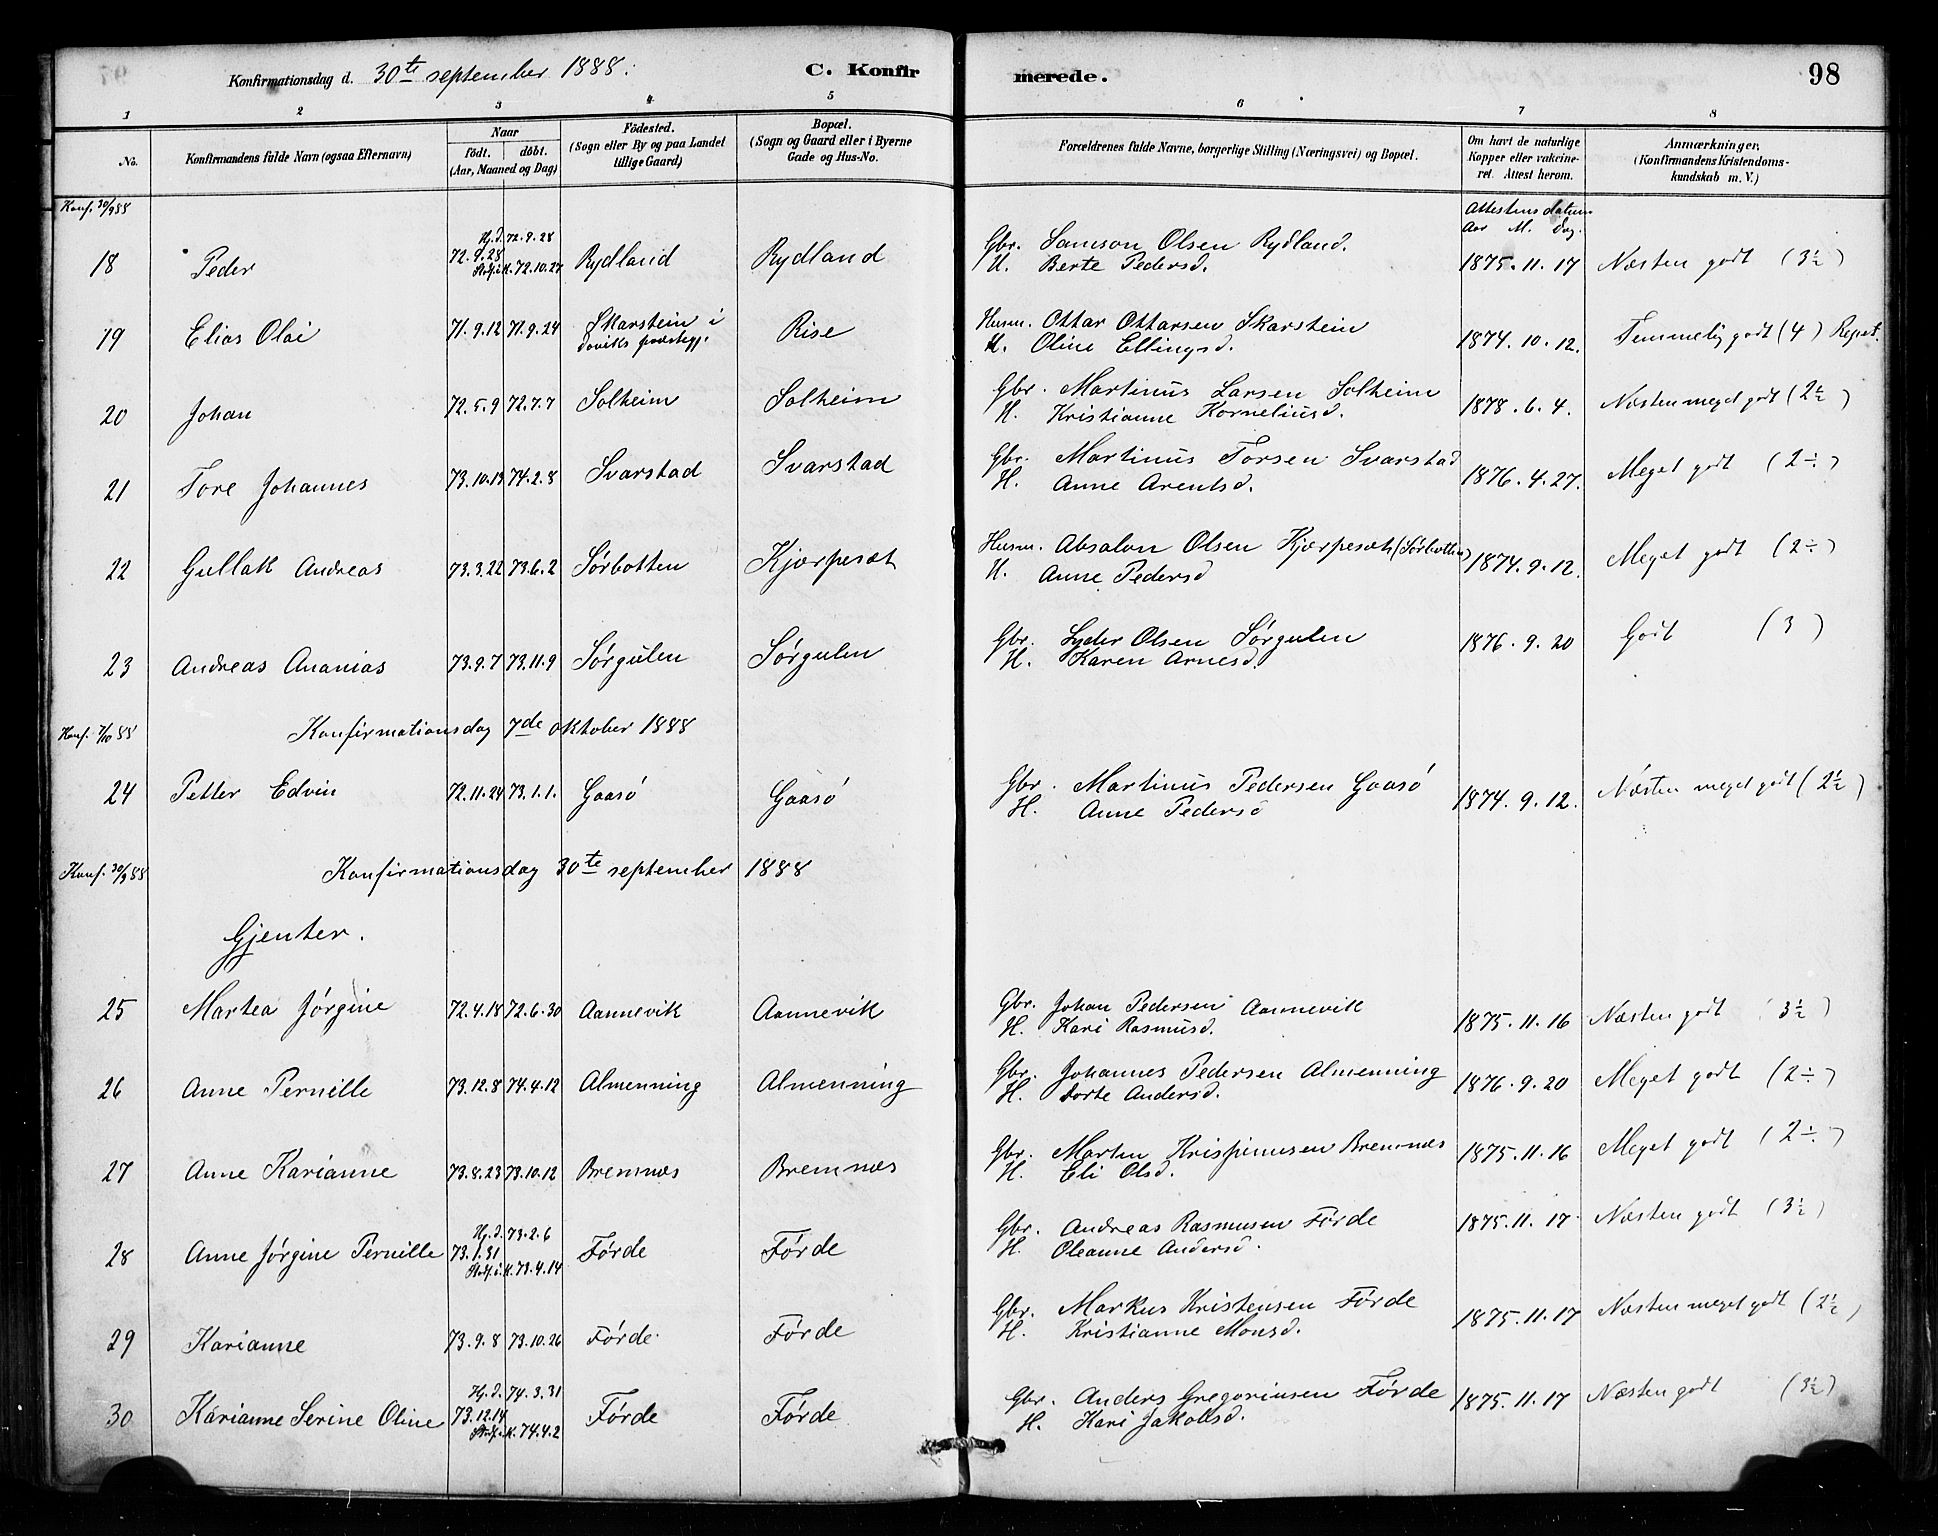 Konfirmationsdag d. 30te september 1888. C. Konfirmerede. 98
1 2 3 4 5 6 7 8
No. Konfirmandens fulde Navn (ogsaa Efternavn) Naar født. døbt. (Aar, Maaned og Dag) Fødested. (Sogn eller By og paa Landet tillige Gaard) Bopæl. (Sogn og Gaard eller i Byerne Gade og Hus-No. Forældrenes fulde Navne, borgerlige Stilling (Næringsvei) og Bopæl. Om havt de naturlige Kopper eller vakcineret. Attest herom. Anmærkninger. (Konfirmandens Kristendomskundskab m. V.)
Konf. 30/9 88 Attestens datum Aar M. Dag.
18 Peder 72.9.28 Hj.d. 72.9.28 Stadf. i K. 72.10.27 Rydland Rydland Gbr. Samson Olsen Rydland. 1875.11.17 Næsten godt (3½)
H. Berte Pedersd.
19 Elias Olai 71.9.12 71.9.24 Skarstein i Daviks præstegj. Rise Husm. Ottar Ottarsen Skarstein 1874.10.12. Temmelig godt (4) Repet.
H. Oline Ellingsd.
20 Johan 72.5.9 72.7.7 Solheim Solheim Gbr. Martinus Larsen Solheim 1878.6.4. Næsten meget godt (2½)
H. Kristianne Korneliusd.
21 Tore Johannes 73.10.19 74.2.8 Svarstad Svarstad Gbr. Martinus Torsen Svarstad 1876.4.27. Meget godt (2÷)
H. Anne Arentsd.
22 Gullak Andreas 73.3.22 73.6.2 Sørbotten Kjærpesæt Husm. Absalon Olsen Kjærpesæt (Sørbotten) 1874.9.12. Meget godt (2÷)
H. Anne Pedersd
23 Andreas Ananias 73.9.7 73.11.9 Sørgulen Sørgulen Gbr. Lyder Olsen Sørgulen 1876.9.20 Godt (3)
H. Karen Arnesd.
Konf. 7/10 88 Konfirmationsdag 7de oktober 1888
24 Petter Edvin 72.11.24 73.1.1. Gaasø Gaasø Gbr. Martinus Pedersen Gaasø 1874.9.12. Næsten meget godt (2½)
H. Anne Pedersd
Konf. 30/9 88 Konfirmationsdag 30te september 1888
Gjenter.
25 Martea Jørgine 72.4.18 72.6.30 Aannevik Aannevik Gbr. Johan Pedersen Aannevik 1875.11.16 Næsten godt (3½)
H. Kari Rasmusd.
26 Anne Pernille 73.12.8 74.4.12 Almenning Almenning Gbr. Johannes Pedersen Almenning 1876.9.20 Meget godt (2÷)
H. Dorte Andersd.
27 Anne Karianne 73.8.23 73.10.12 Bremnæs Bremnæs Gbr. Marten Krispinusen Bremnæs 1875.11.16 Meget godt (2÷)
H. Eli Olsd.
28 Anne Jørgine Pernille 73.1.31 Hj.d. 73.2.6 Stadf. i K. 73.4.14 Førde Førde Gbr. Andreas Rasmusen Førde 1875.11.17 Næsten godt (3½)
H. Oleanne Andersd.
29 Karianne 73.9.8 73.10.26 Førde Førde Gbr. Markus Kristensen Førde 1875.11.17 Næsten meget godt (2½)
H. Kristianne Monsd.
30 Karianne Serine Oline 73.12.14 Hj.d. 74.3.31 Stadf. i K. 74.4.2 Førde Førde Gbr. Anders Gregoriusen Førde 1875.11.17 Næsten godt (3½)
H. Kari Jakobsd.